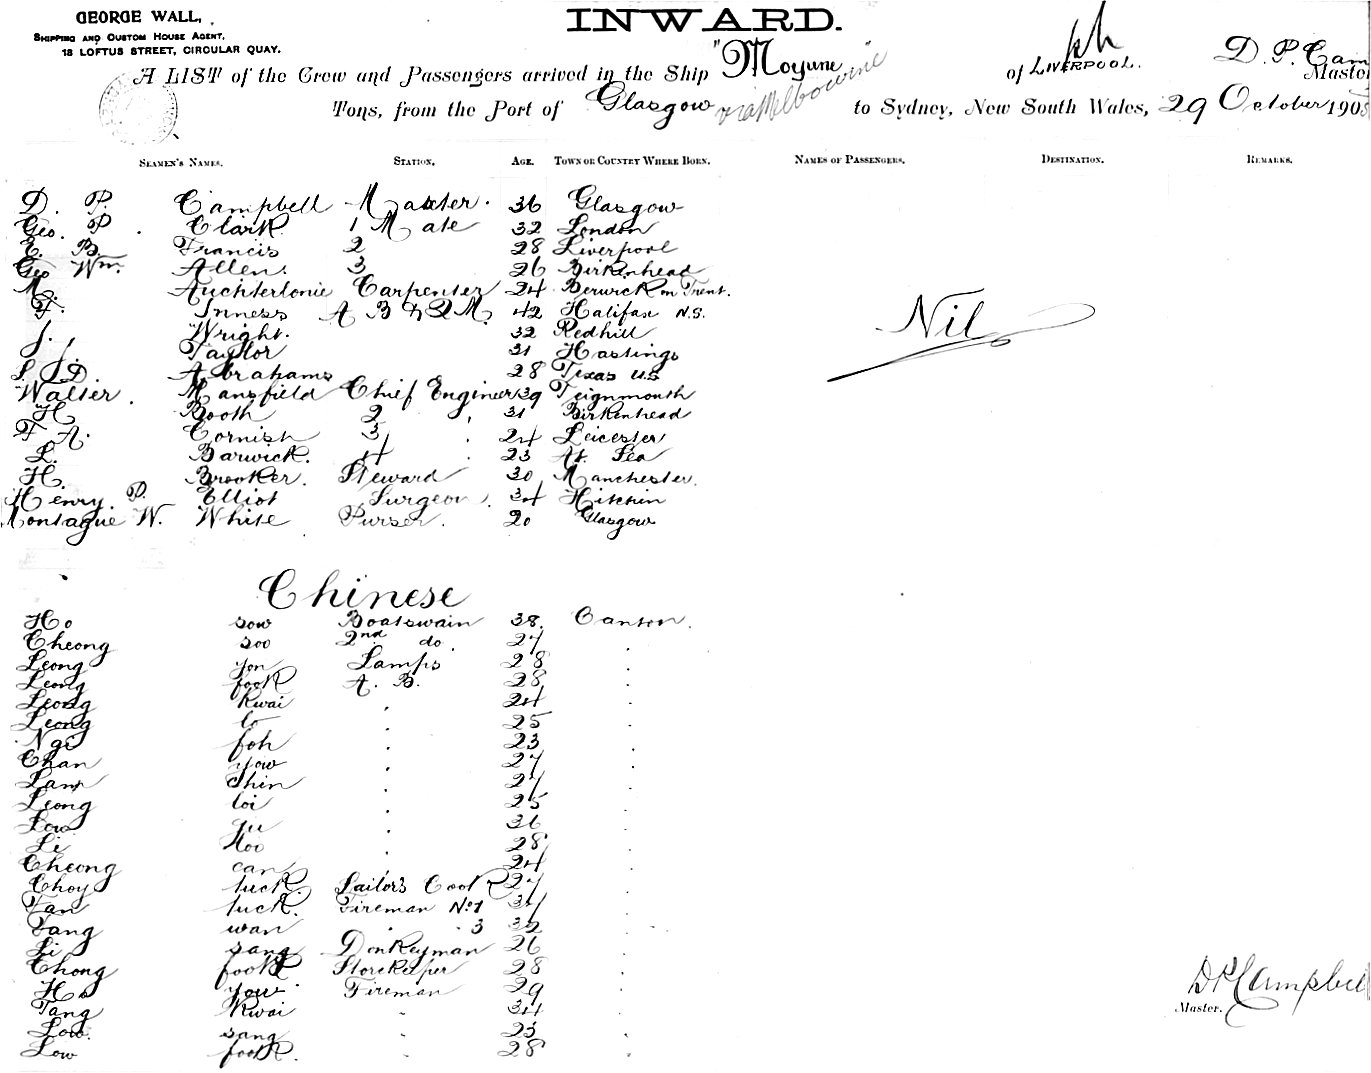 GEORGE WALL,
SHIPPING AND CUSTOM HOUSE AGENT,
18 LOFTUS STREET, CIRCULAR QUAY.
INWARD.
A LIST of the Crew and Passengers arrived in the Ship "Moyune of LIVERPOOL. D. P. Cam Master
Tons, from the Port of Glasgow via Melbourne to Sydney, New South Wales, 29 October 190
SEAMEN'S NAMES. STATION. AGE. TOWN OR COUNTRY WHERE BORN. NAMES OF PASSENGERS. DESTINATION. REMARKS.
D. P. Campbell Master. 36 Glasgow
Geo. P. Clark 1 Mate 32 London
E. B. Francis 2 28 Liverpool
Geo Wm. Allen. 3 26 Birkenhead
M. Auchterlonie Carpenter 24 Berwick on Trent.
F. Inness A B & Q M. 42 Halifax N.S.
Nil
J. Wright. 32 Redhill
J. Taylor 31 Hastings
S. J. D. Abrahams 28 Texas U S
Walter. Mansfield Chief Engineer 39 Teignmouth
H. Booth 2 31 Birkenhead
F A. Cornish 3 24 Leicester
L. Barwick. 4 23 At Sea
H. Brooker. Steward 30 Manchester.
Henry. P. Elliot Surgeon. 34 Hitchin
Montague W. White Purser. 20 Glasgow
Chinese
Ho sow Boatswain 38. Canton.
Cheong soo 2nd do. 27
Leong yon Lamps 28
Leong fook A. B. 28
Leong Kwai 24
Leong lo 25
Ngi foh 23
Chan yow 27
Lam Shin 27
Leong loi 25
Low yu 36
Li Hoo 28
Cheong can 24
Choy luck Sailor's Cook 27
Fan luck. Fireman No 1 34
Tang wan 3 32
Li sang Donkeyman 26
Chong fook Storekeeper 28
Ho yow Fireman 29
Tang Kwai 34
Low. sang 23
Low fook. 28
D P Campbel
Master.